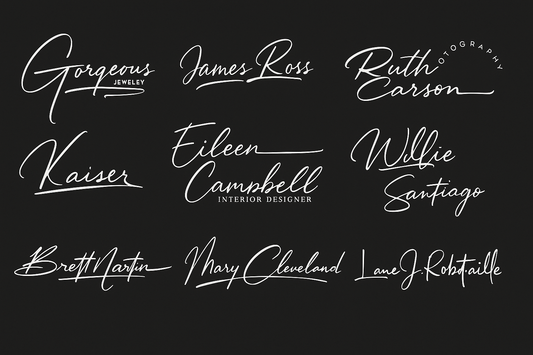 Gorgeous
JEWELEY
James Ross
Ruth
Carson
OTOGRAPHY
Kaiser
Eileen
Campbell
INTERIOR DESIGNER
Willie
Santiago
Brett Nartin
Mary Cleveland
Lane J. Robotaille